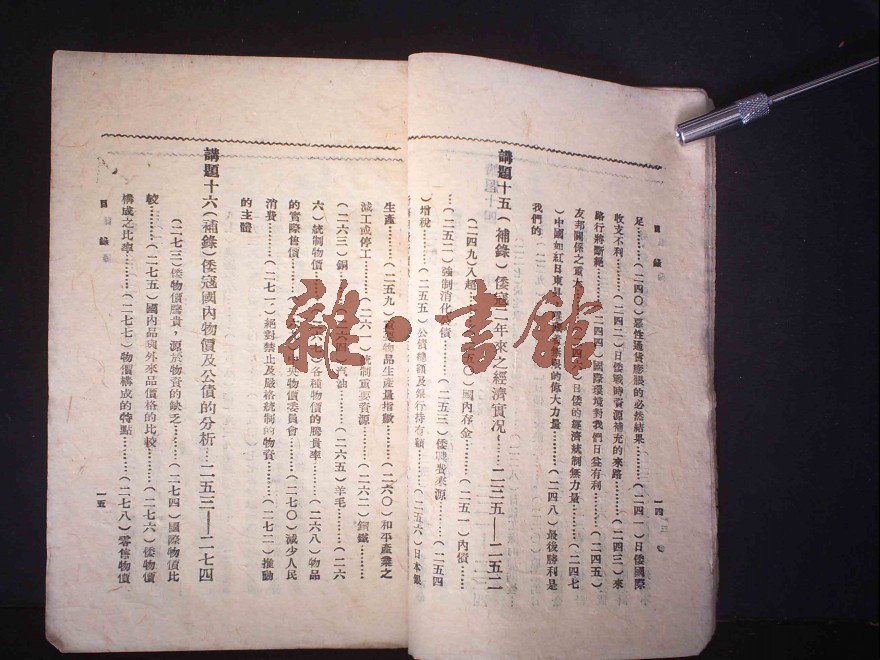 目錄
一四
足………(二四〇)惡性通貨膨脹的必然結果………(二四一)日倭國際
收支不利………(二四二)日倭戰時資源補充的來路………(二四三)來
路行將斷絕………(二四四)國際環境對我們日益有利………(二四五)
友邦關係之重大 四六)日倭的經濟統制無力量………(二四七
)中國如紅日東 無限的偉大力量………(二四八)最後勝利是
我們的
講題十五(補錄)倭寇二年來之經濟實況……二三五——二五二
(二四九)入超 五〇)國內存金………(二五一)內債……
…(二五二)強制消化 債………(二五三)倭 費來源………(二五四
)增稅………(二五五)公債總額及銀行持有額………(二五六)日本銀
生產………(二五九) 要物品生產量指數………(二六〇)和平產業之
減工或停工………(二六一)統制重要資源………(二六二)鋼鐵………
(二六三)銅 二六四)汽油………(二六五)羊毛………(二六
六)統制物價 六七)各種物價的騰貴率………(二六八)物品
的實際售價 中央物價委員會………(二七〇)減少人民
消費………(二七一)絕對禁止及嚴格統制的物資………(二七二)推動
的主體
講題十六(補錄)倭寇國內物價及公債的分析……二五三——二七四
(二七三)倭物價騰貴,源於物資的缺乏………(二七四)國際物價比
較………(二七五)國內品與外來品價格的比較………(二七六)倭物價
構成之比率………(二七七)物價構成的特點………(二七八)零售物價
目錄
一五
雜·書館